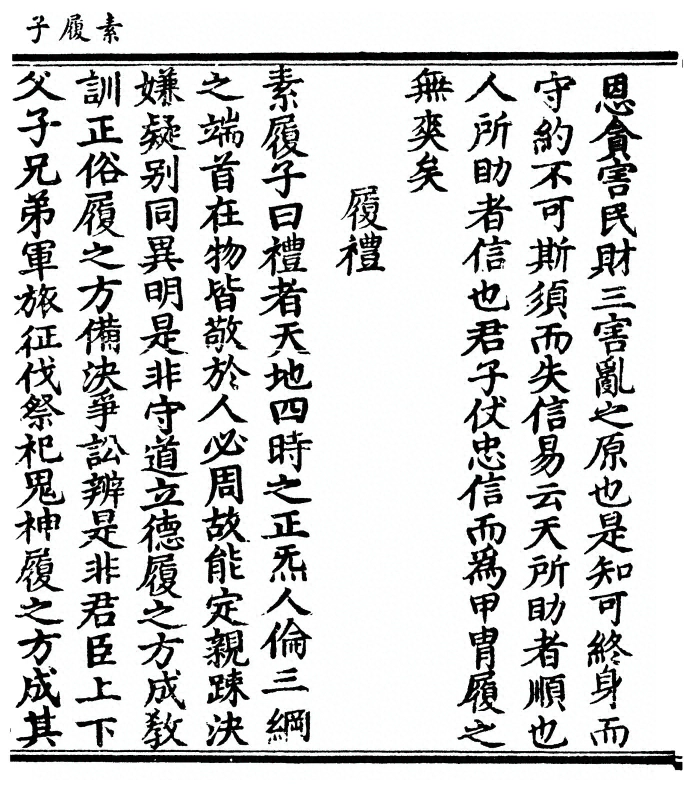 素履子
恩貪害民財三害亂之原也是知可終身而
守約不可斯須而失信易云天所助者順也
人所助者信也君子仗忠信而爲甲冑履之
無爽矣
履禮
素履子曰禮者天地四時之正炁人倫三綱
之端首在物皆敬於人必周故能定親踈決
嫌疑别同異明是非守道立德履之方成敎
訓正俗履之方備決爭訟辨是非君臣上下
父子兄弟軍旅征伐祭祀鬼神履之方成其